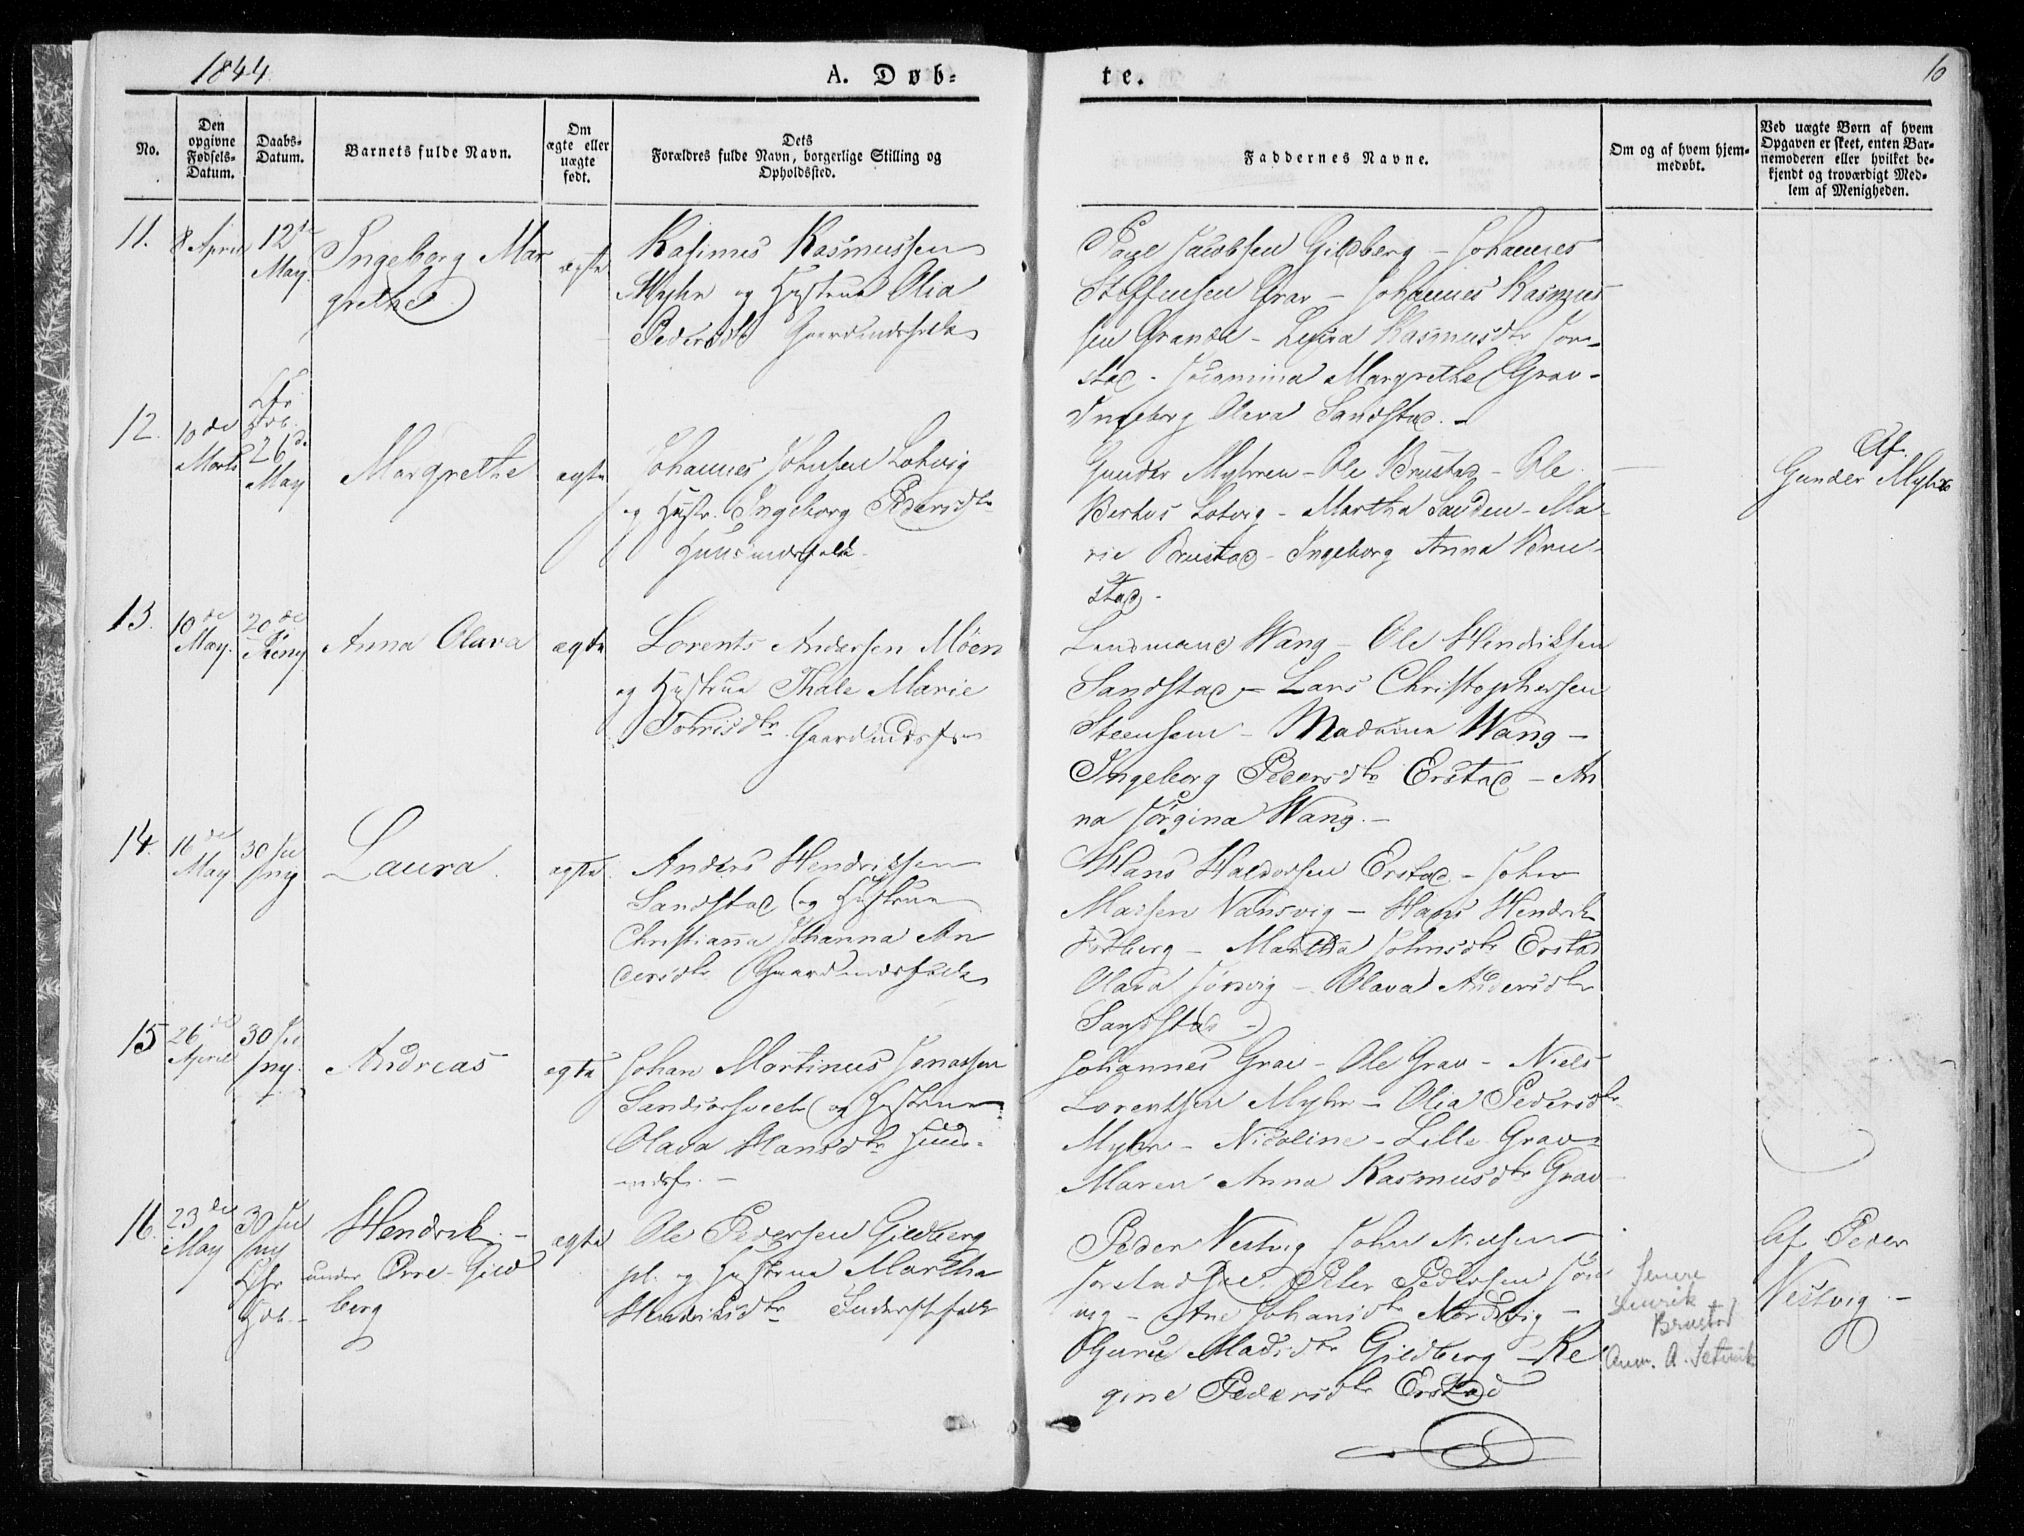 1844
A. Døb-
te.
10
No.
Den opgivne Fødsels-Datum.
Daabs-Datum.
Barnets fulde Navn.
Om ægte eller uægte født.
Dets Forældres fulde Navn, borgerlige Stilling og Opholdssted.
Faddernes Navne.
Om og af hvem hjem-medøbt.
Ved uægte Børn af hvem Opgaven er skeet, enten Bar-nemoderen eller hvilket be-kjendt og troværdigt Med-lem af Menigheden.
11.
8 April
12te
May
Ingeborg Mar
grethe
ægte
Rasmussen
Myhr og Hustrue Olia
Pedersdtr Gaardmandsfolk
Jacobsen Gildberg - Johannes
Steffensen Grav - Johannes Rasmus
sen Grande - Rasmusdtr
stad - Margrethe Grav -
Ingeborg Olava Sandstad. -
12.
10de
Marts
26de
May
Margrethe
ægte
Johannes Johnsen Lotvig
og Hustr. Ingeborg Pedersdtr
Huusmandsfolk
Gunder Myhren - Ole Brustad - Ole
Lotvig - Martha Sanden - Ma-
rie Brustad - Ingeborg Anna Bru-
stad -
Af
Gunder Myhr
13.
10de
May.
20de
Anna Olava
ægte
Lorents Andersen Moen
og Hustrue Thale Marie
Gaardmandsf
Lensmand Wang - Ole Hendriksen
Sandstad - Lars Christophersen
Steensen - Madame Wang -
Ingeborg Pedersdtr Erstad - An
na Jørgina Wang. -
14.
May
30 Ju
ny
Laura
ægte
Anders Hendriksen
Sandstad og Hustrue
Christianna Johanna An
dersdtr Gaardmandsfolk
Hans Haldorsen Erstad - John
Vansvig - Hans Hendrik
- Martha Johnsdtr Erstad
Olava - Olava Andersdtr
Sandstad -
15
26de
April
30 Ju
ny.
Andreas
ægte
Johan Martinus Jonassen
og Hustrue
Olava Hansdtr Huus-
mdsf. -
Johannes Grav - Ole Grav - Niels
Lorentsen Myhr - Olia Pedersdtr
Myhr - Nicoline - Lille Grav -
Maren Anna Rasmusdtr Grav
16.
23de
May
30 Ju
ny
Hendrik -
under Gild
berg
ægte
Ole Pedersen Gildberg
pl. og Hustrue Martha
Hendriksdtr Inderstfolk
Peder Vestvig John Nielsen
Peter Pedersen
vig - Ane Johansdtr Nordvig -
Guru Madsdtr Gildberg - Re
gine Pedersdtr Erstad
Senere
Henrik
Brustad
Anm. A.
Af Peder
Vestvig -